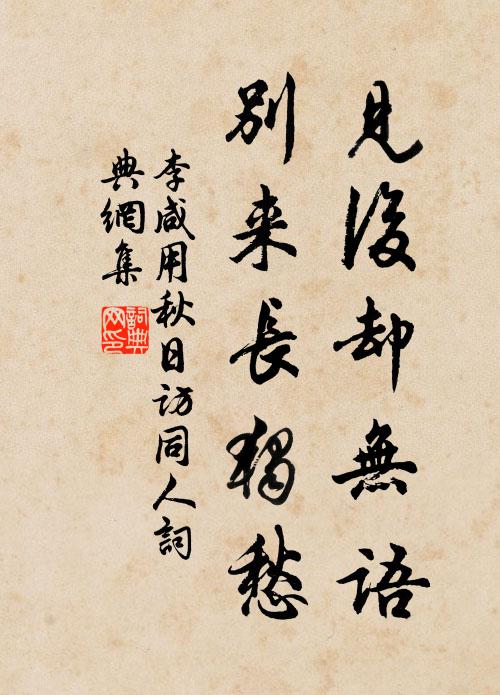 見後却無語
別来長獨愁
李咸用秋日訪同人詞
典網集
詞典網印